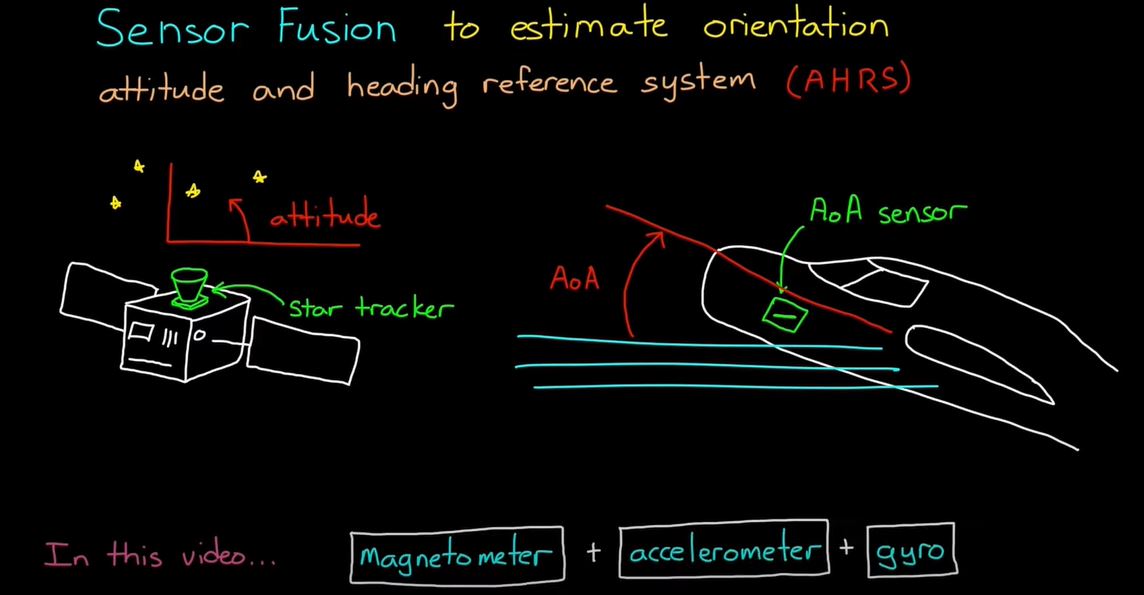 Sensor Fusion to estimate orientation
attitude and heading reference system (AHRS)
attitude
star tracker
AoA sensor
AoA
In this video...
Magnetometer + accelerometer + gyro